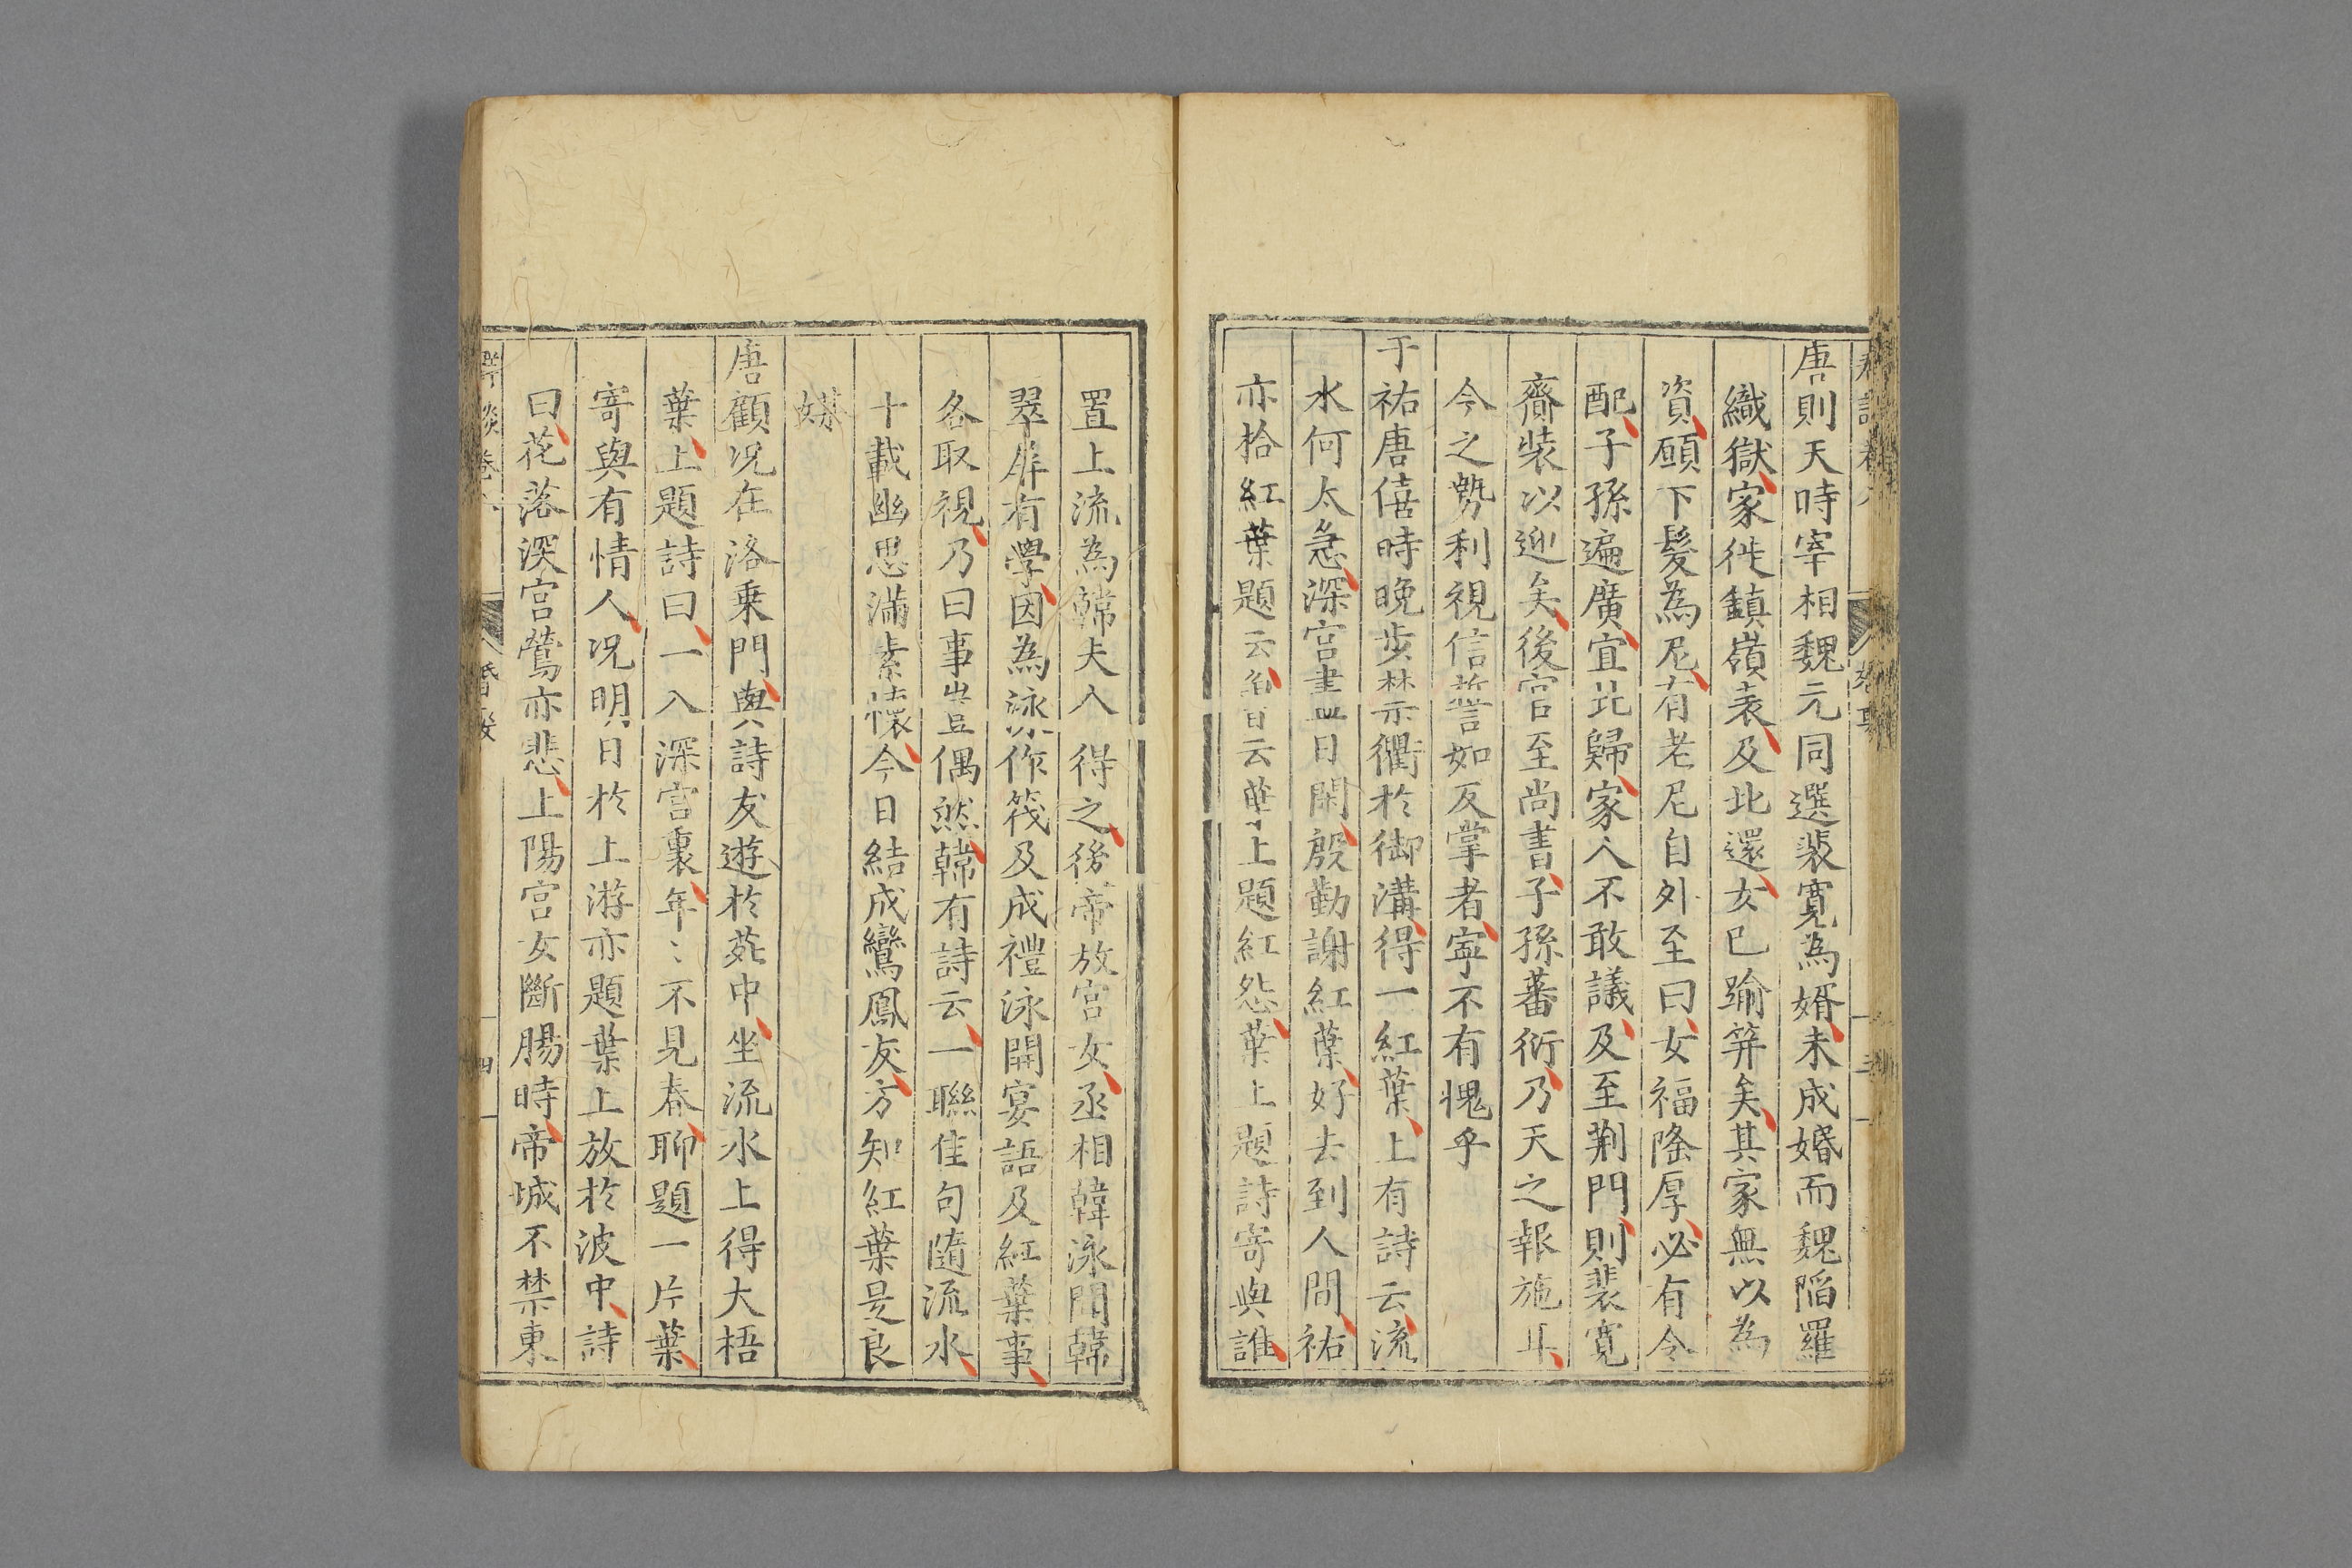 唐則天時宰相魏元同選裴寬為婿未成婚而魏陷羅
織獄家徙鎮嶺表及北還女已踰笄矣其家無以為
資願下髮為尼有老尼自外至曰女福隆厚必有令
配子孫遍廣宜北歸家人不敢議及至荆門則裴寬
齎裝以迎矣後官至尚書子孫蕃衍乃天之報施耳
今之勢利視信誓如反掌者寧不有愧乎
于祐唐僖時晚步禁衢於御溝得一紅葉上有詩云流
水何太急深宮盡日閑殷勤謝紅葉好去到人間祐
亦拾紅葉題云曾云葉上題紅怨葉上題詩寄與誰
置上流為韓夫人得之後帝放宮女丞相韓泳聞韓
翠屏有學因為泳作筏及成禮泳開宴語及紅葉事
各取視乃曰事豈偶然韓有詩云一聯佳句隨流水
十載幽思滿素懷今日結成鸞鳳友方知紅葉是良
媒
唐顧况在洛乘門與詩友遊於苑中坐流水上得大梧
葉上題詩曰一入深宮裏年〻不見春聊題一片葉
寄與有情人况明日於上游亦題葉上放於波中詩
曰花落深宮鶯亦悲上陽宮女斷腸時帝城不禁東